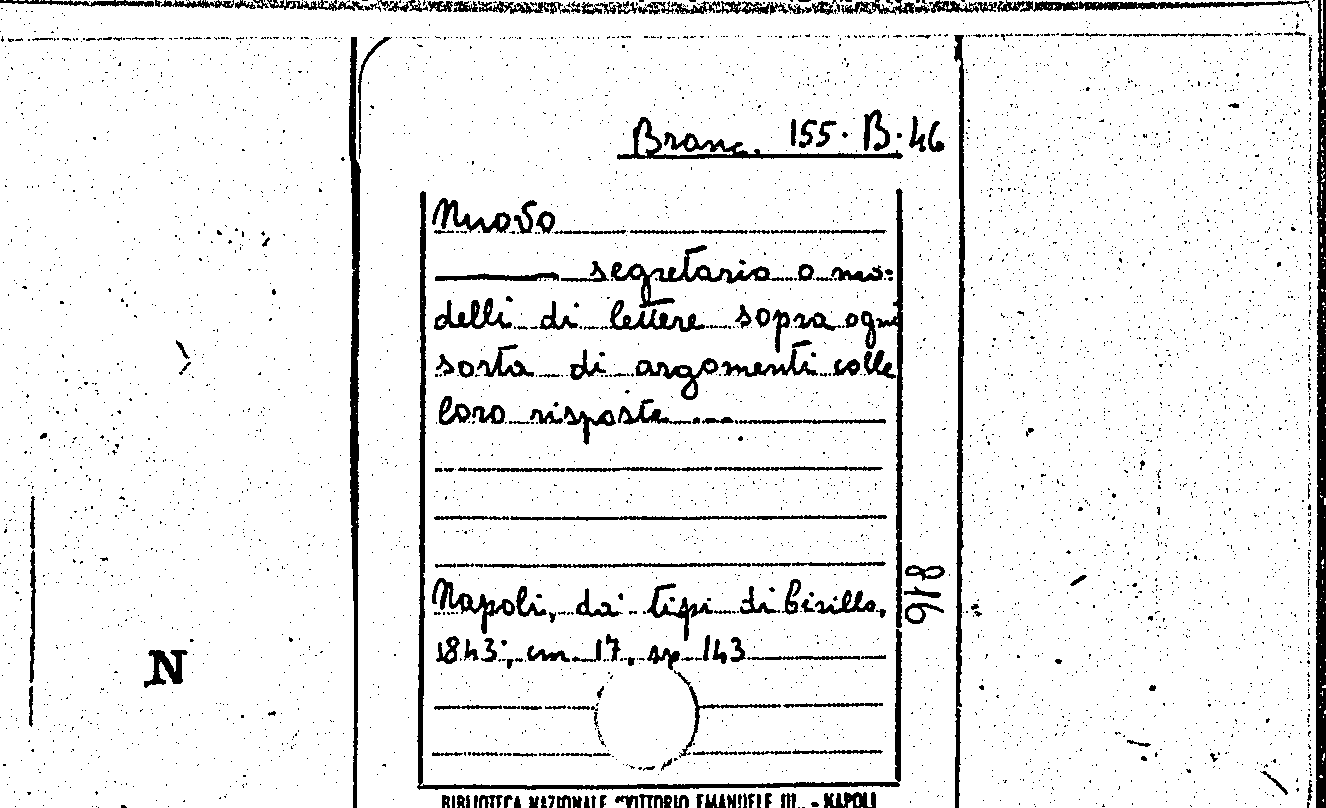 Branc. 155. B. 46
Nuovo
——— segretario o mo-
delli di lettere sopra ogni
sorta di argomenti colle
loro risposte ...
Napoli, da' tipi di Cirillo,
1843, cm. 17, pp 143
918
N
BIBLIOTECA NAZIONALE "VITTORIO EMANUELE III„ - NAPOLI